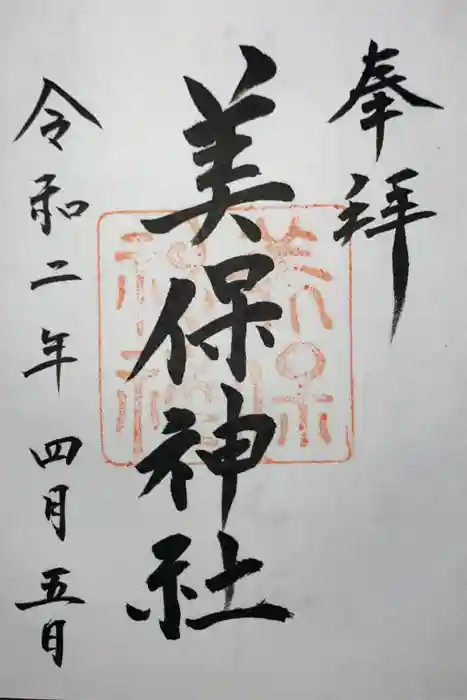 奉拝
美保神社
令和二年四月五日